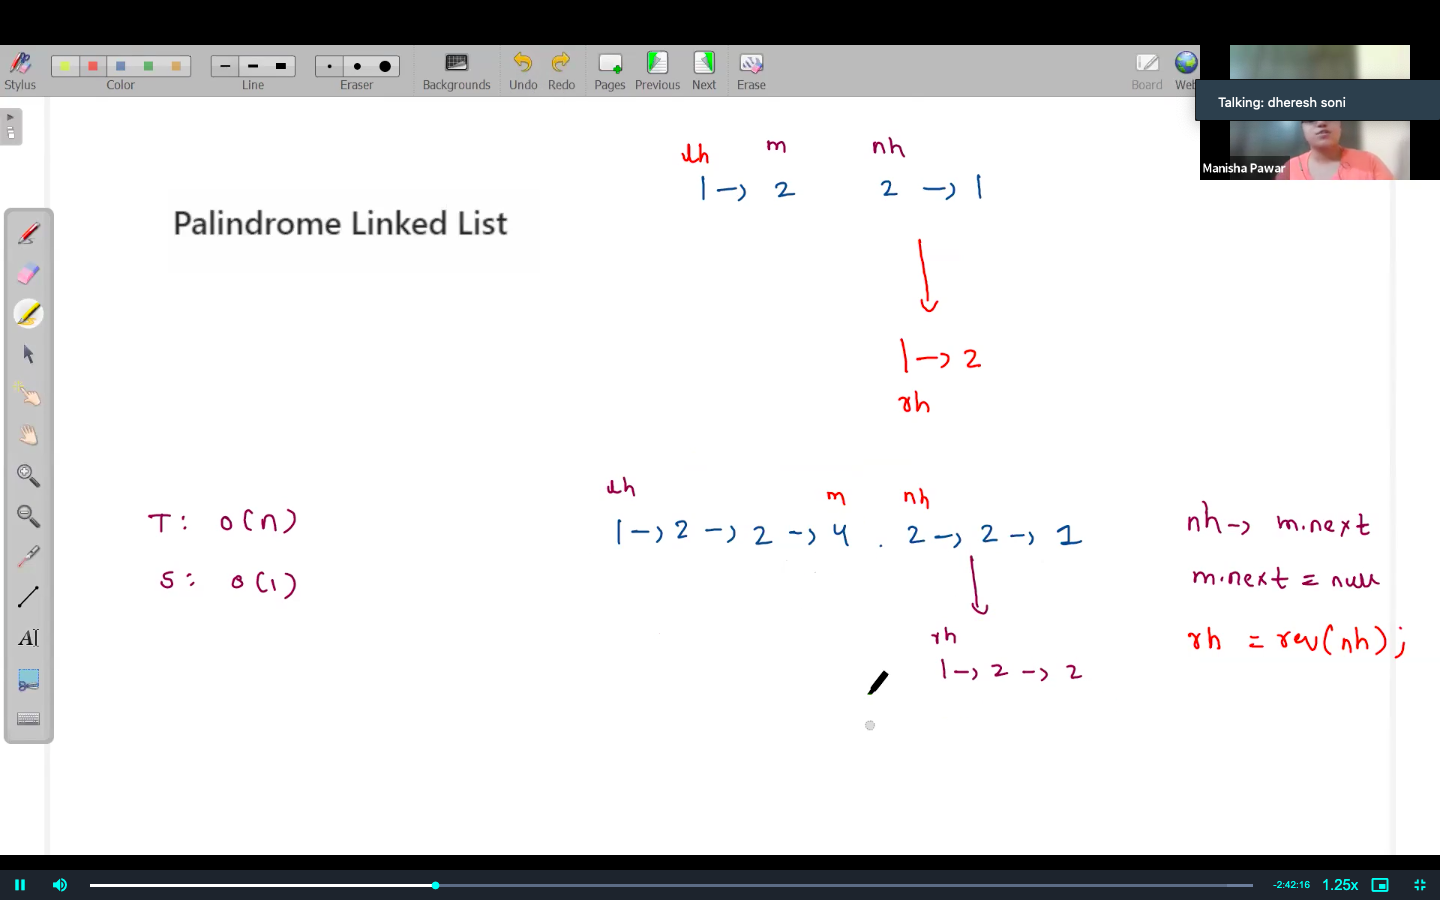 Stylus
Color
Line
Eraser
Backgrounds
Undo
Redo
Pages
Previous
Next
Erase
Board
Web
Talking: dheresh soni
Manisha Pawar
lh m nh
1 → 2 2 → 1
Palindrome Linked List
1 → 2
rh
lh m nh
1 → 2 → 2 → 4 . 2 → 2 → 1
T: O(n)
S: O(1)
nh → m.next
m.next = null
rh = rev(nh);
rh
1 → 2 → 2
-2:42:16
1.25x